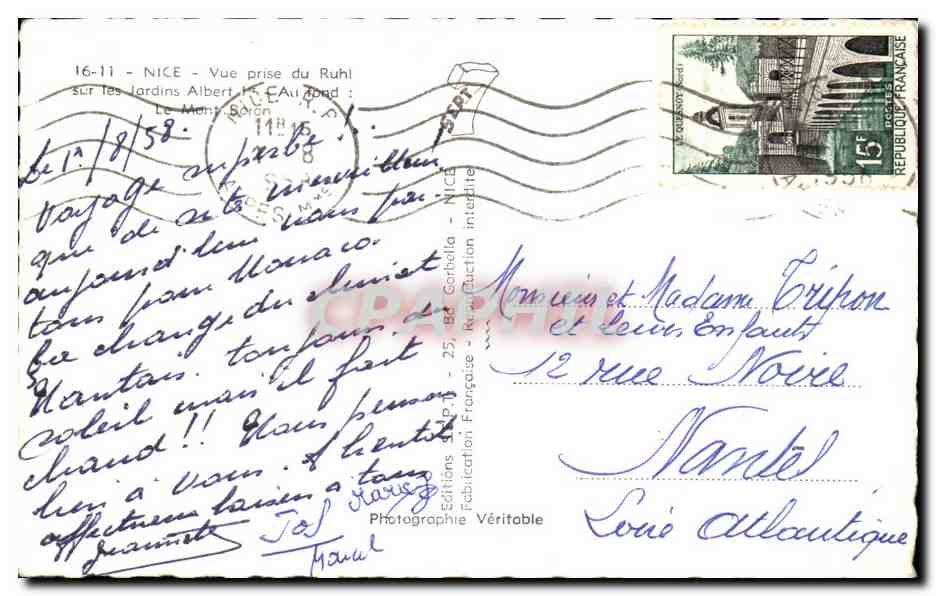 16-11 - NICE - Vue prise du Ruhl
sur les Jardins Albert Ier. Au fond :
Le Mont Boron
NICE R.P.
11H15
8
ALPES Mmes
Le 1er/8/58.
Voyage superbe !
que de sites merveilleux
aujourd'hui nous par-
tons pour Monaco.
ça change du climat
Nantais. toujours du
soleil mais il fait
chaud !! Nous pensons
bien à vous. A bientôt
affectueux baisers à tous
Jeannette
Jof
Marcel
SEPT
Editions S.E.P.T. - 25, Bd Gorbella - NICE
Fabrication Française - Reproduction interdite
Photographie Véritable
LE QUESNOY (Nord)
15F
POSTES
REPUBLIQUE FRANÇAISE
Monsieur et Madame Tripon
et leurs Enfants
12 rue Noire
Nantes
Loire Atlantique
CPAPHIL